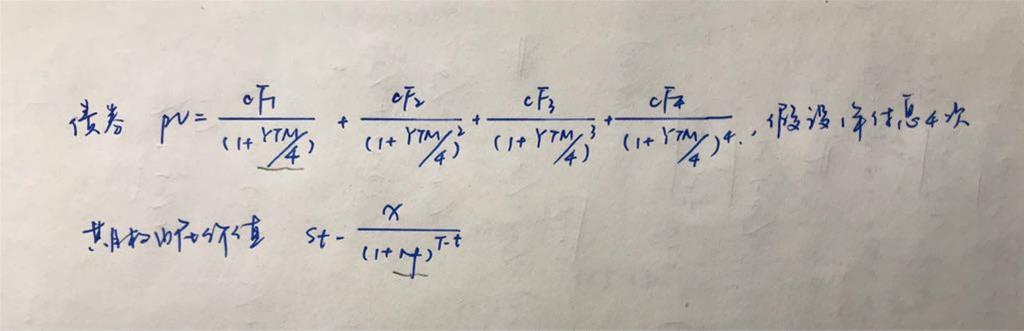 债券 PV = CF₁/(1+YTM/4) + CF₂/(1+YTM/4)² + CF₃/(1+YTM/4)³ + CF₄/(1+YTM/4)⁴, 假设年付息4次
期权内在价值 St - X/(1+rf)^(T-t)